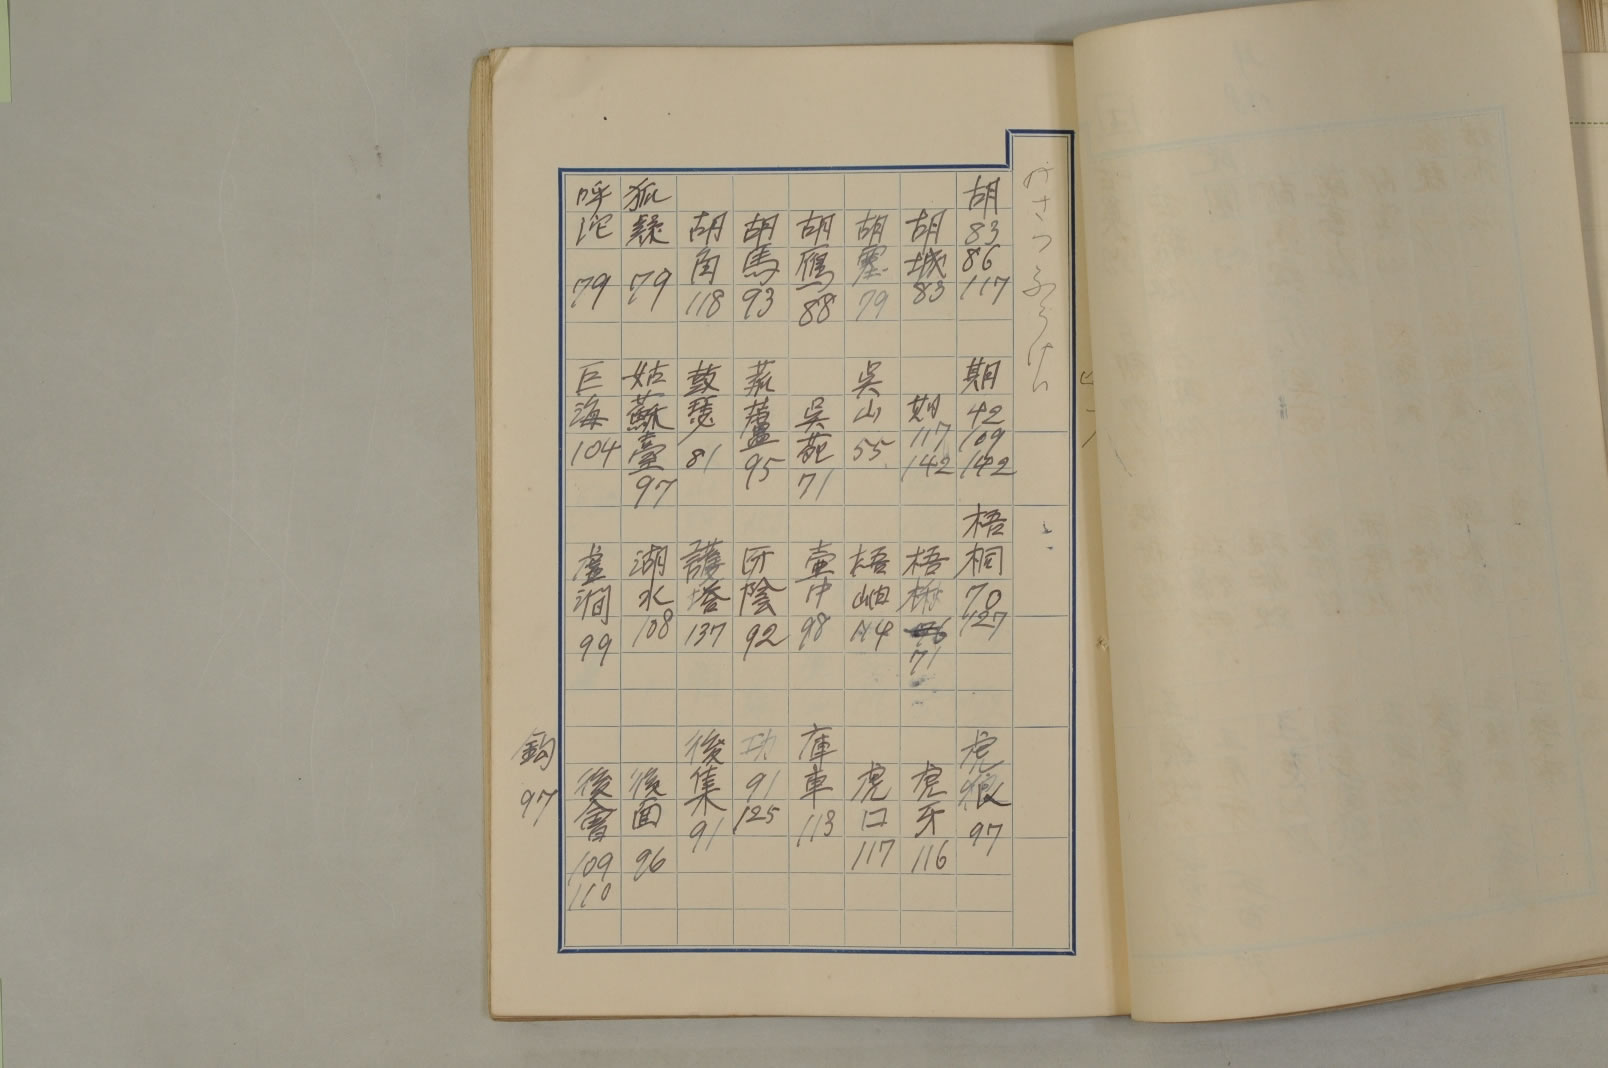 胡 83 86 117
期 42 109 142
梧桐 70 127
虎狼 97
胡城 83
期 117 142
梧 71
虎牙 116
胡塞 79
吳山 55
梧岫
虎口 117
胡雁 88
吳苑 71
壷中 98
庫車 113
胡馬 93
菰蘆 95
92
功 91 125
胡角 118
鼓瑟 81
護塔 137
後集 91
狐疑 79
姑蘇臺 97
湖水 108
後面 96
呼沱 79
巨海 104
虚澗 99
後會 109 110
鉤 97